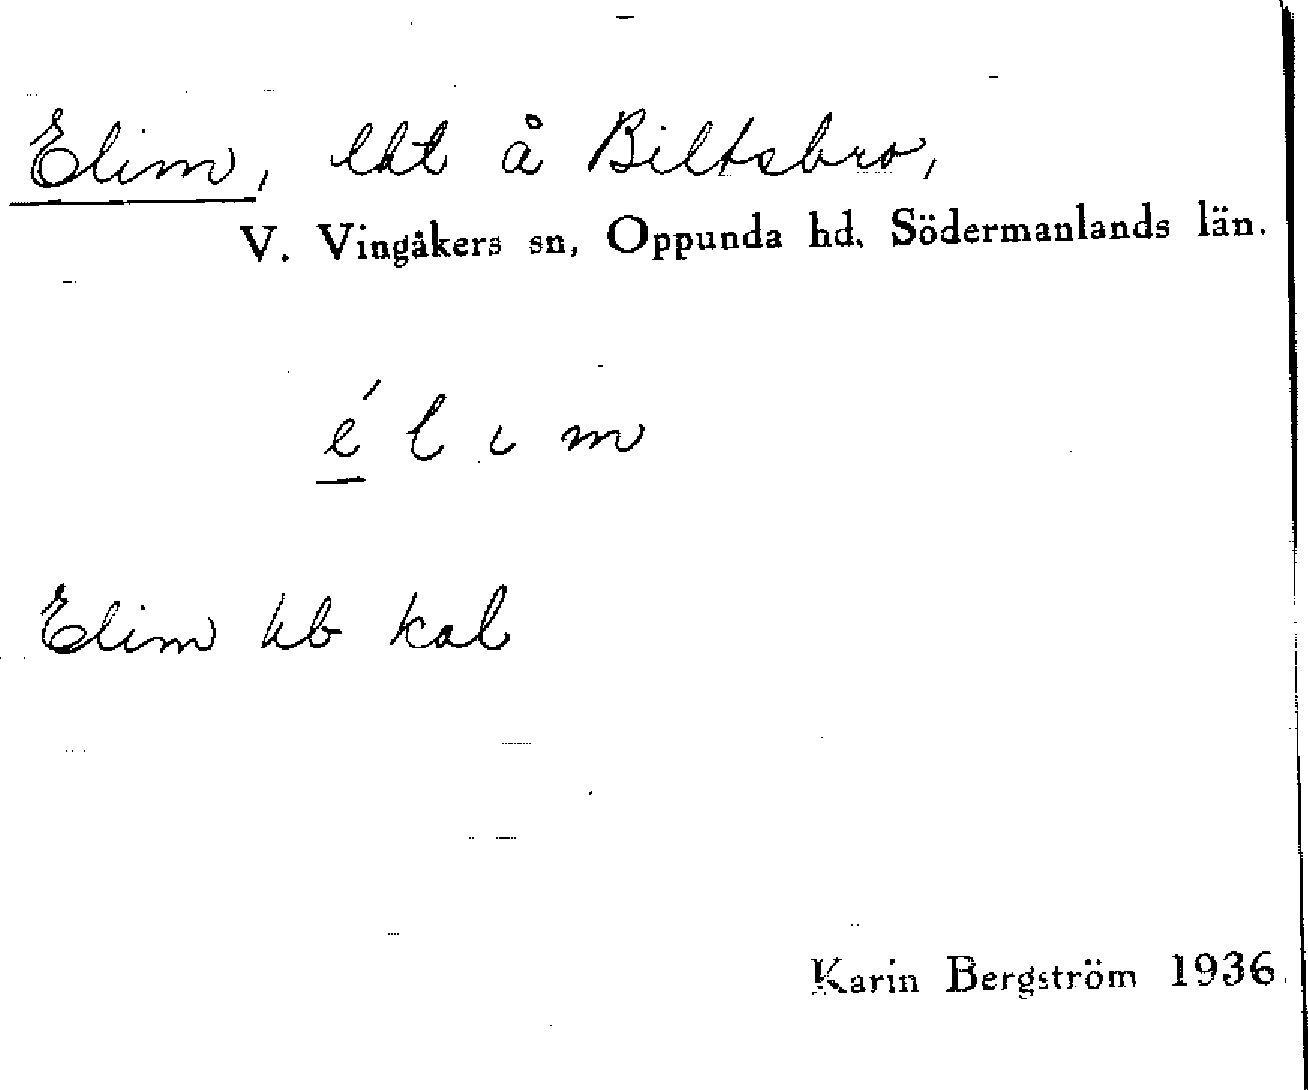 Elim, lht å Biltsbro,
V. Vingåkers sn, Oppunda hd. Södermanlands län.
é l ı m
Elim kb kal
Karin Bergström 1936